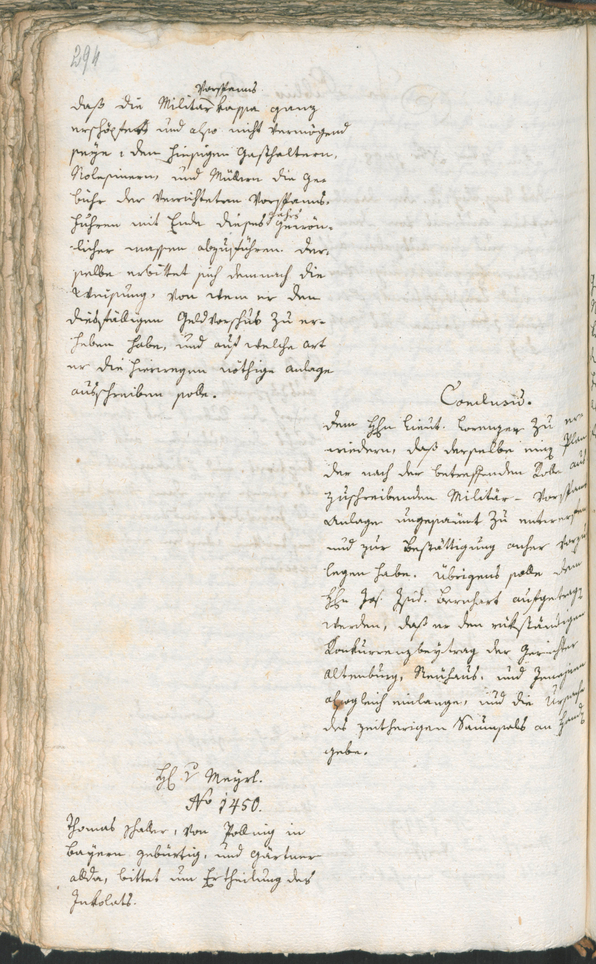 294
Vorspanns
daß die Militärkassa ganz
erschöpfet und also nicht vermögend
seye, den hiesigen Gasthaltern,
und Müllern die Ge-
bühr der verrichteten Vorspanns-
fuhren mit Ende dieses Jahrs gewön-
licher massen abzuführen. der-
selbe erbittet sich demnach die
Weisung, von wem er den
diesfälligen Geldvorschub zu er-
heben habe, und auf welche art
er die hierwegen nöthige anlage
ausschreiben solle.
Conclusu.
dem Hhn Lieut. Lorenzer zu er-
wiedern, daß derselbe den Plan
der nach der betreffenden Rolle aus-
zuschreibenden Militär-Vorspanns
anlage ungesäumt zu entwerfen
und zur Bestättigung anher vorzu
legen habe. übrigens solle dem
Hhn Jos. Bernhart aufgetragen
werden, daß er den rükständigen
Konkurrenzbeytrag der Gerichter
Altenburg, Neuhaus, und Jenesien
alsogleich einlange, und die Ursache
des zeitherigen Saumsals an Hand
gebe.
Hh v Meyrl.
No 1450.
Thomas von Polling in
Bayern gebürtig, und Gärtner
allda, bittet um Ertheilung des
Inkolats.